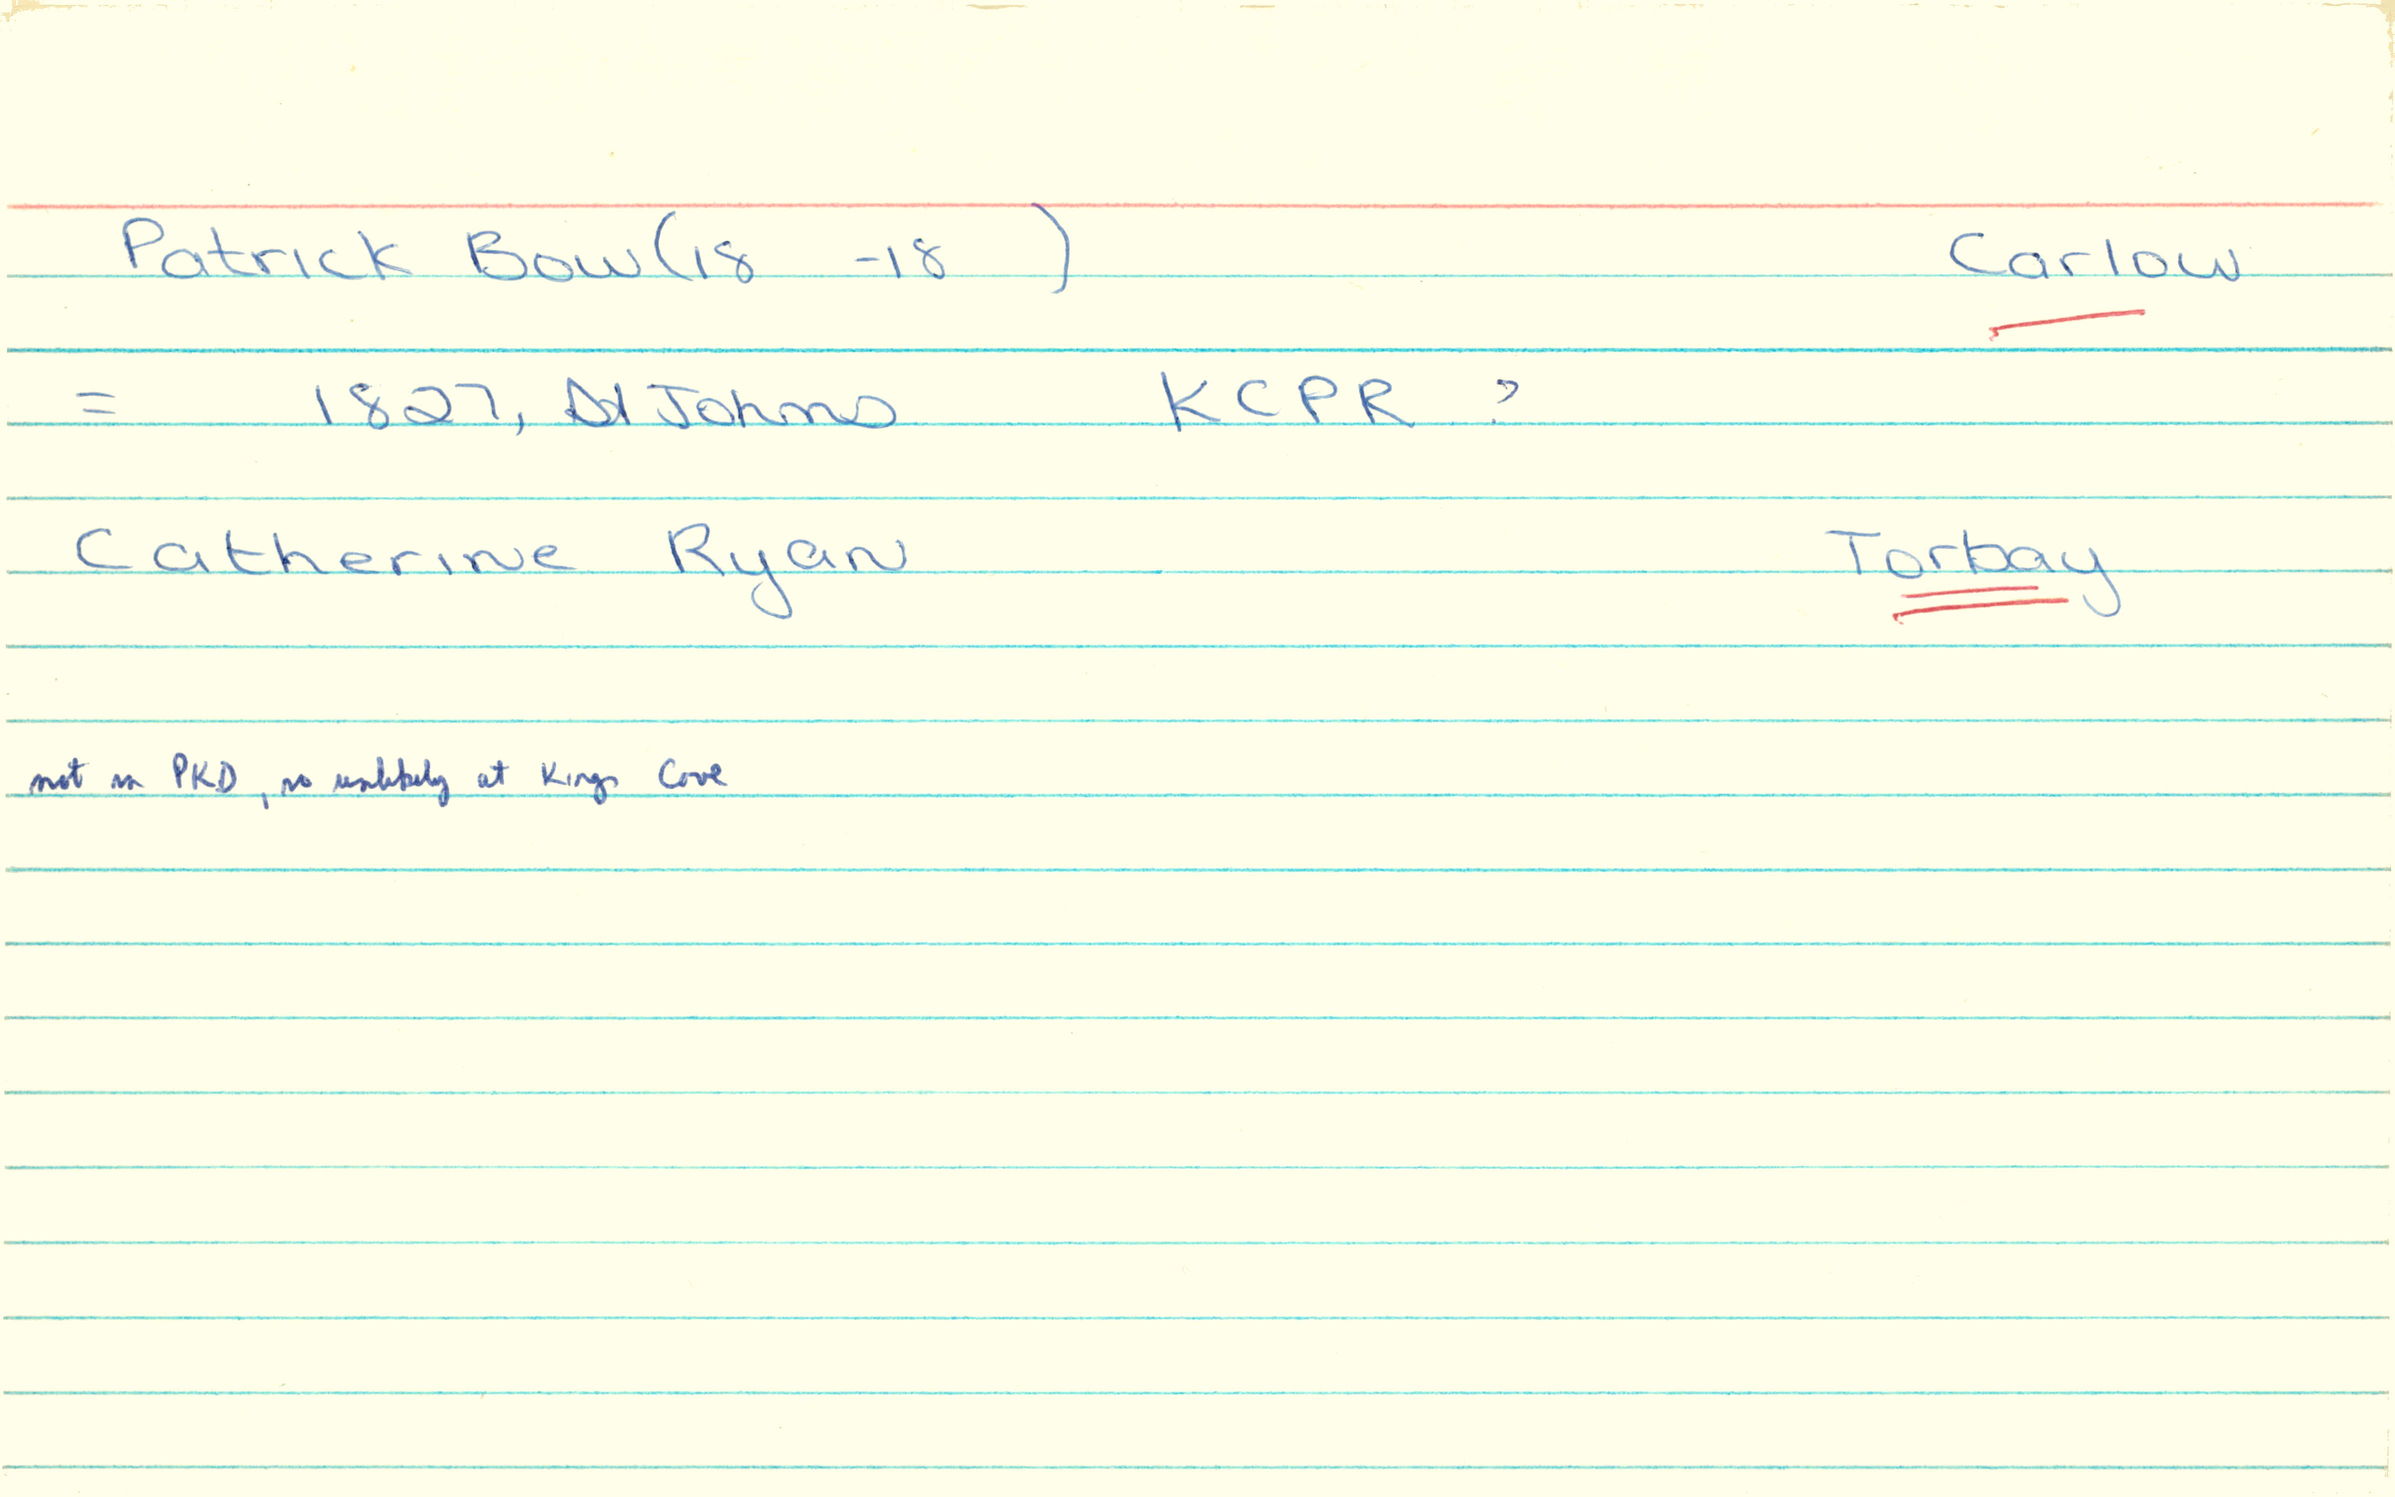 Patrick Bow (18   -18   ) Carlow
= 1827, St Johns KCPR ?
Catherine Ryan Torbay
not in PKD, so unlikely at Kings Cove